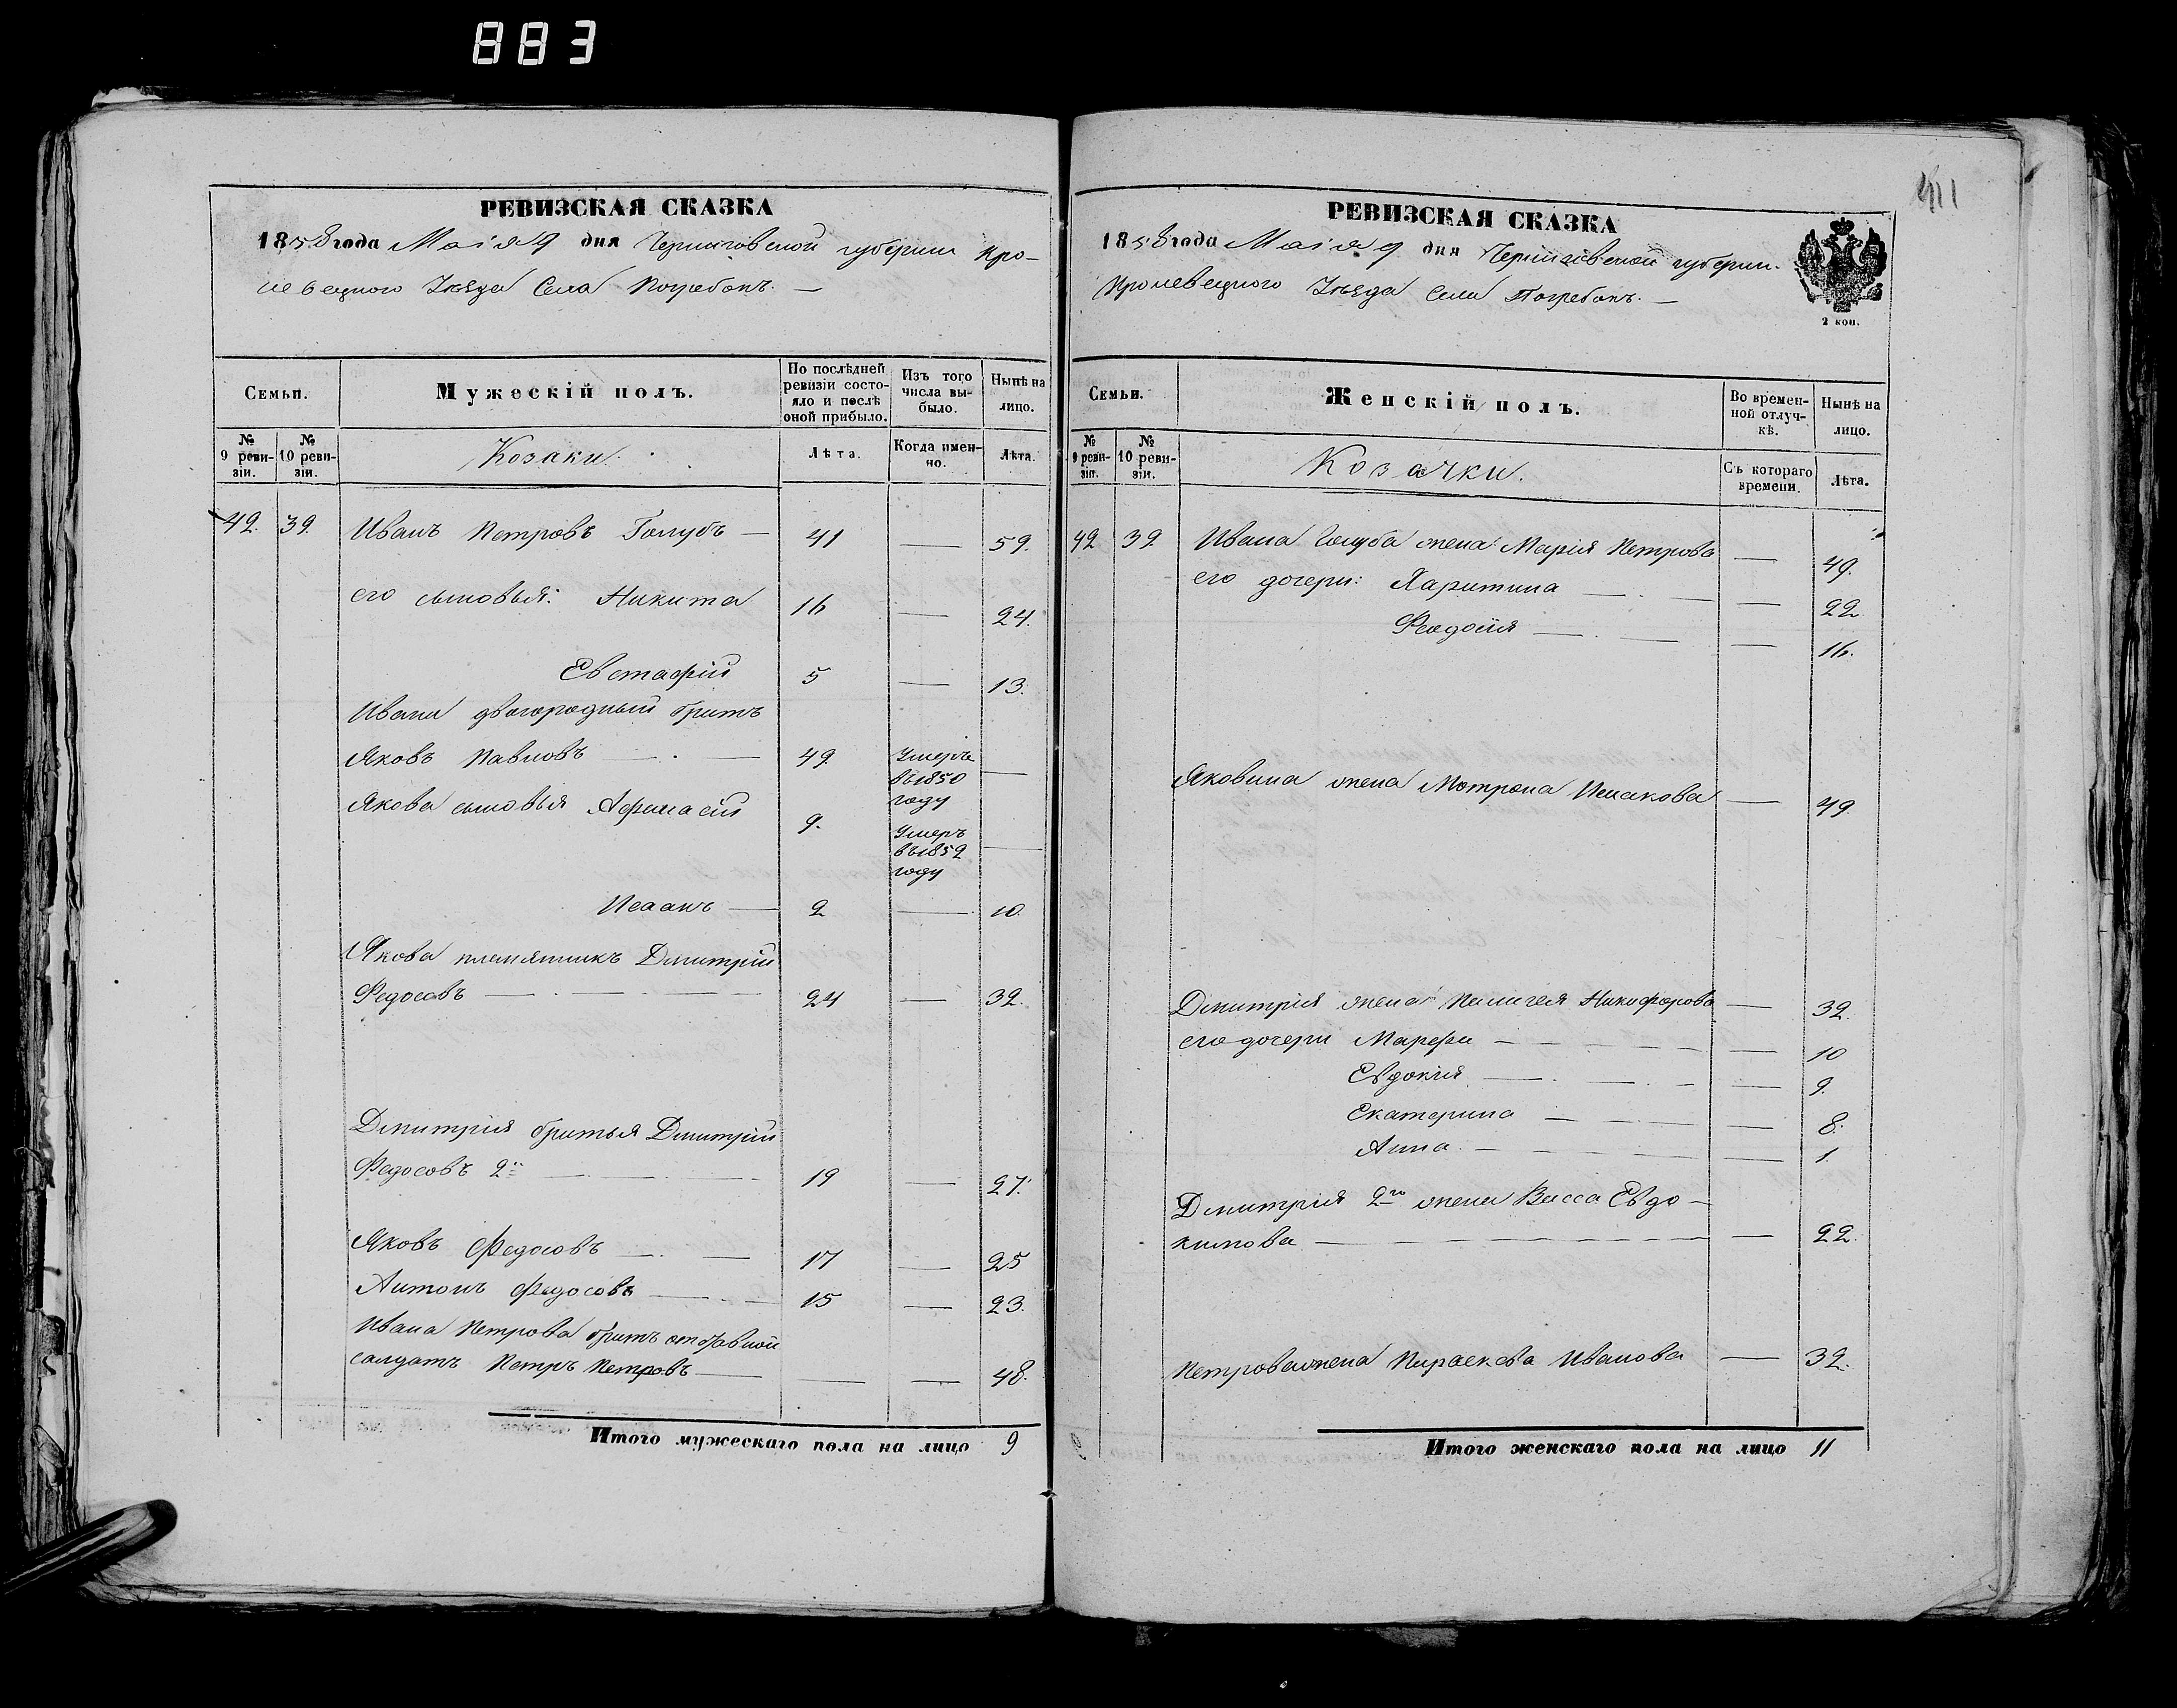 883
411
РЕВИЗСКАЯ СКАЗКА
1858 года Маія 9 дня Черниговской губерніи Кро-
левецкого Уѣзда Села Погребокъ. —
Семьи.
Мужескій полъ.
По послѣдней ревизіи состояло и послѣ оной прибыло.
Изъ того числа выбыло.
Нынѣ на лицо.
№ 9 ревизіи.
№ 10 ревизіи.
Козаки.
Лѣта.
Когда именно.
Лѣта.
42. 39. Иванъ Петровъ Голубъ — 41 — 59.
его сыновья: Никита 16 — 24.
Евстафій 5 — 13.
Ивана двоюродный братъ
Яковъ Павловъ — 49 Умеръ въ 1850 году —
Якова сыновья Афанасій 9. Умеръ въ 1852 году —
Исаакъ — 2 — 10.
Якова племянникъ Дмитрій
Федосовъ — 24 — 32.
Дмитрія братья Дмитрій
Федосовъ 2й — 19 — 27.
Яковъ Федосовъ — 17 — 25
Антонъ Федосовъ — 15 — 23.
Ивана Петрова братъ отставной
солдатъ Петръ Петровъ — — — 48.
Итого мужескаго пола на лицо 9
РЕВИЗСКАЯ СКАЗКА
1858 года Маія 9 дня Черниговской губерніи.
Кролевецкого Уѣзда Села Погребокъ. —
2 коп.
Семьи.
Женскій полъ.
Во временной отлучкѣ.
Нынѣ на лицо.
№ 9 ревизіи.
№ 10 ревизіи.
Козачки.
Съ котораго времени.
Лѣта.
42 39 Ивана Голуба жена: Марія Петрова — 49.
его дочери: Харитина — — 22
Феодосія — — 16.
Яковина жена Мотрона Исакова — 49.
Дмитрія жена Пелагея Никифорова — 32.
его дочери Марфа — — 10
Евдокия — — 9.
Екатерина — — 8.
Анна — — 1.
Дмитрія 2го жена Васса Евдо-
кимова — — 22.
Петрова жена Параскева Иванова — 32.
Итого женскаго пола на лицо 11